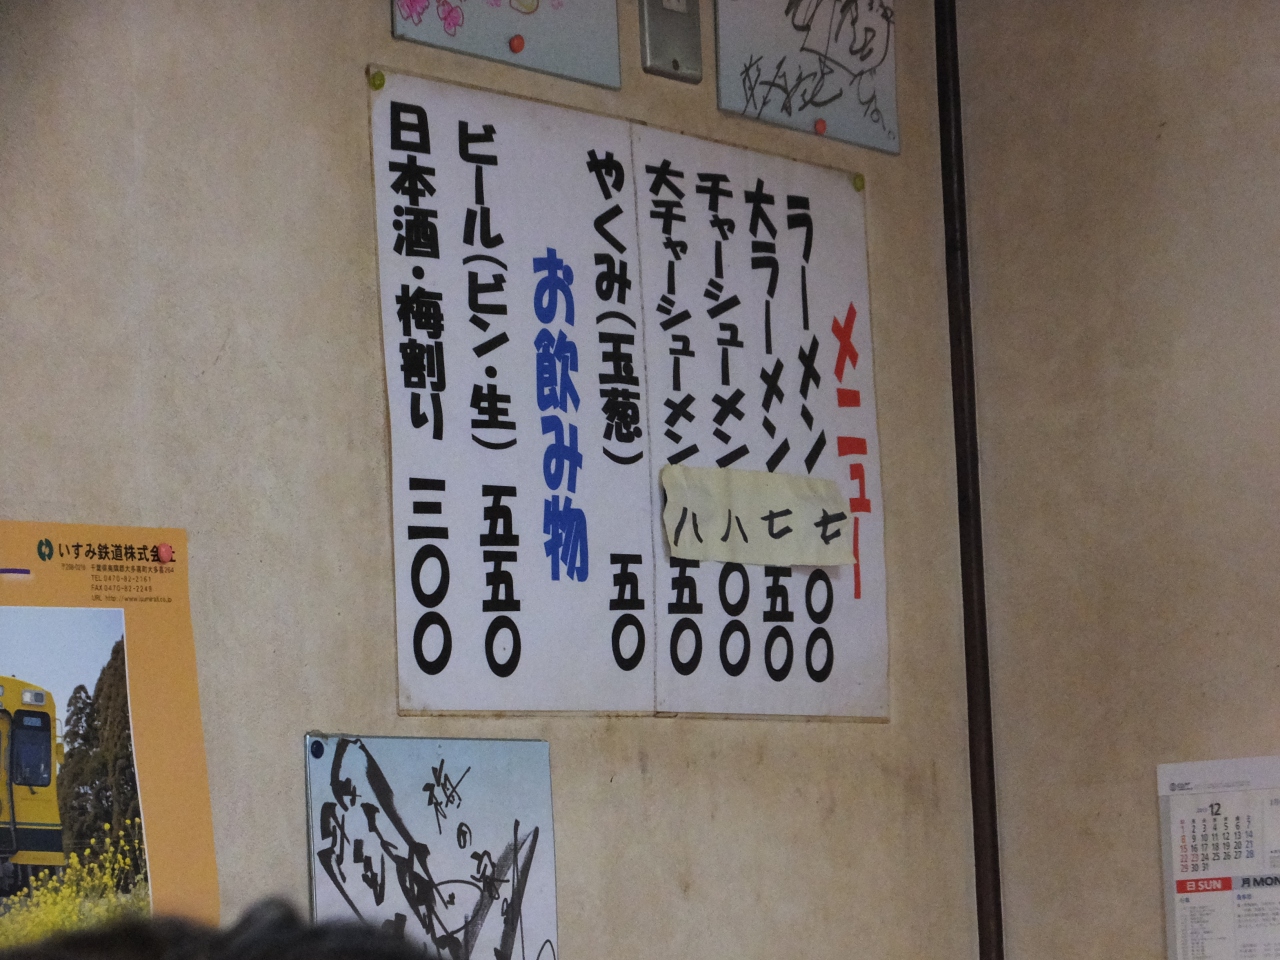 メニュー
ラーメン 七〇〇
大ラーメン 七五〇
チャーシューメン 八〇〇
大チャーシューメン 八五〇
やくみ(玉葱) 五〇
お飲み物
ビール(ビン・生) 五五〇
日本酒・梅割り 三〇〇
いすみ鉄道株式会社
TEL 0470-82-2161
梅の家
12
日 SUN
月 MON